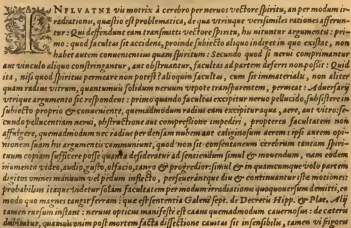 INFLVATNE vis motrix à cerebro per nervos vectore spiritu, an per modum ir-
radiationis, quæstio est problematica, de qua utrinque verisimiles rationes afferun-
tur: Qui defendunt eam transmitti vectore spiritu, his nituntur argumentis: pri-
mo: quod facultas sit accidens, proinde subiecto aliquo indiget in quo existat, non
habet autem convenientius quam spiritum: Secundo quod si nervi comprimantur
aut vinculo aliquo constringantur, aut obstruantur, facultas ad partem deferri non possit: Quid
ita, nisi quod spiritus permeare non potest? alioquin facultas, cum sit immaterialis, non aliter
quam radius vitrum, quantumvis solidum nervum utpote transparentem, permeat: Adversarij
utrique argumento sic respondent: primo quando facultas excipitur nervo pellucido, subsistere in
subiecto proprio & convenienti, quemadmodum radius cum excipitur aqua, aere, aut vitro: se-
cundo pellucentiam nervi, obstructione aut compressione impediri, propterea facultatem non
affulgere, quemadmodum nec radius per densam nubem aut caliginosum aerem: ipsi autem opi-
nionem suam his argumentis communiunt, quod non sit consentaneum cerebrum tantam spiri-
tuum copiam sufficere posse quanta desideratur ad sentiendum simul & movendum, nam eodem
momento video, audio, gusto, olfacio, tango & progredior simul & in quamcumque volo partem
digitos omnes manuum vel pedum inflecto, perseverántque diu & continuantur istæ motiones:
probabilius itaque videtur solam facultatem per modum irradiationis quoquoversum demitti, eo
modo quo magnes tangit ferrum: quæ est sententia Galeni sept. de Decretis Hipp. & Plat. Alij
tamen rursum instant: nervus opticus manifeste est cavus quemadmodum cavernosus: de cæteris
dubitatur, quamvis non post mortem facta dissectione cavitas sit insensibilis, tamen vi vigore